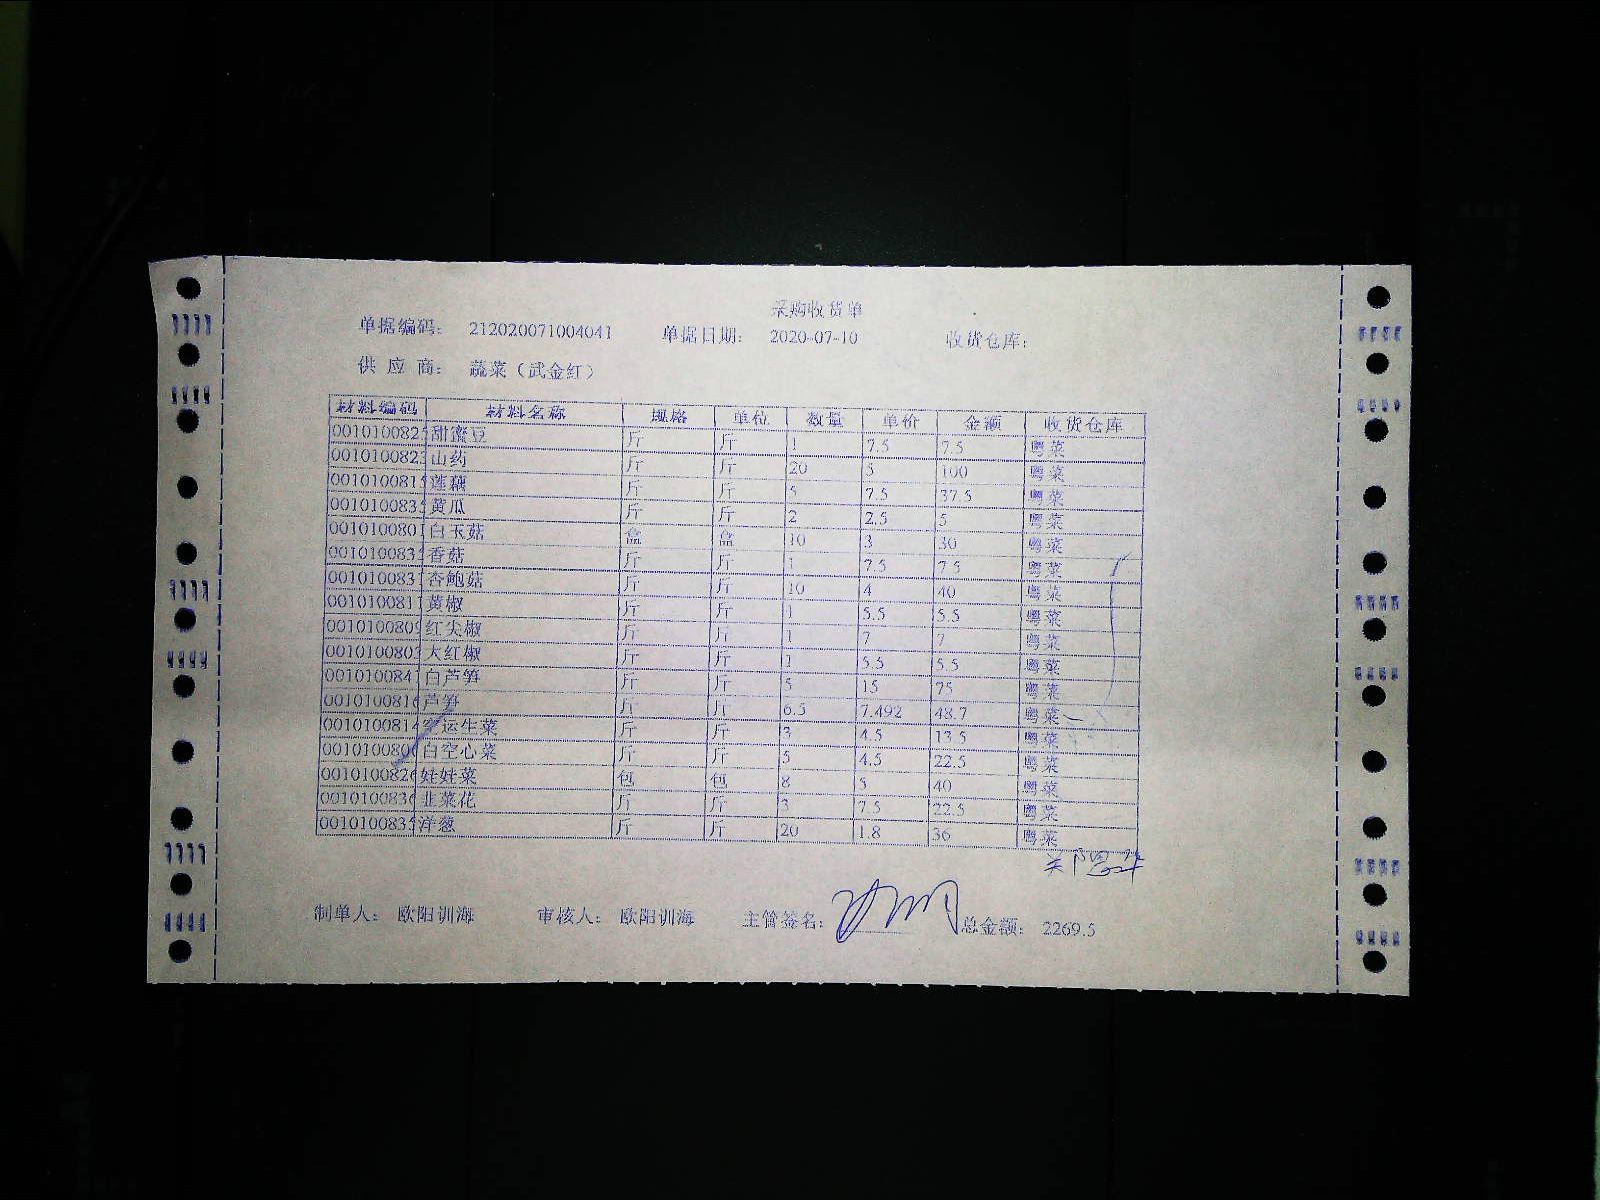 采购收货单
单据编码: 212020071004041 单据日期: 2020-07-10 收货仓库:
供 应 商: 蔬菜(武金红)
材料编码 材料名称 规格 单位 数量 单价 金额 收货仓库
0010100825 甜蜜豆 斤 斤 1 7.5 7.5 粤菜
0010100823 山药 斤 斤 20 5 100 粤菜
0010100815 莲藕 斤 斤 5 7.5 37.5 粤菜
0010100835 黄瓜 斤 斤 2 2.5 5 粤菜
0010100801 白玉菇 盒 盒 10 3 30 粤菜
0010100835 香菇 斤 斤 1 7.5 7.5 粤菜
0010100831 杏鲍菇 斤 斤 10 4 40 粤菜
0010100811 黄椒 斤 斤 1 5.5 5.5 粤菜
0010100809 红尖椒 斤 斤 1 7 7 粤菜
0010100803 大红椒 斤 斤 1 5.5 5.5 粤菜
0010100841 白芦笋 斤 斤 5 15 75 粤菜
0010100816 芦笋 斤 斤 6.5 7.492 48.7 粤菜
0010100814 运生菜 斤 斤 3 4.5 13.5 粤菜
0010100806 白空心菜 斤 斤 5 4.5 22.5 粤菜
0010100826 娃娃菜 包 包 8 5 40 粤菜
0010100836 韭菜花 斤 斤 3 7.5 22.5 粤菜
0010100835 洋葱 斤 斤 20 1.8 36 粤菜
制单人: 欧阳训海 审核人: 欧阳训海 主管签名: 总金额: 2269.5